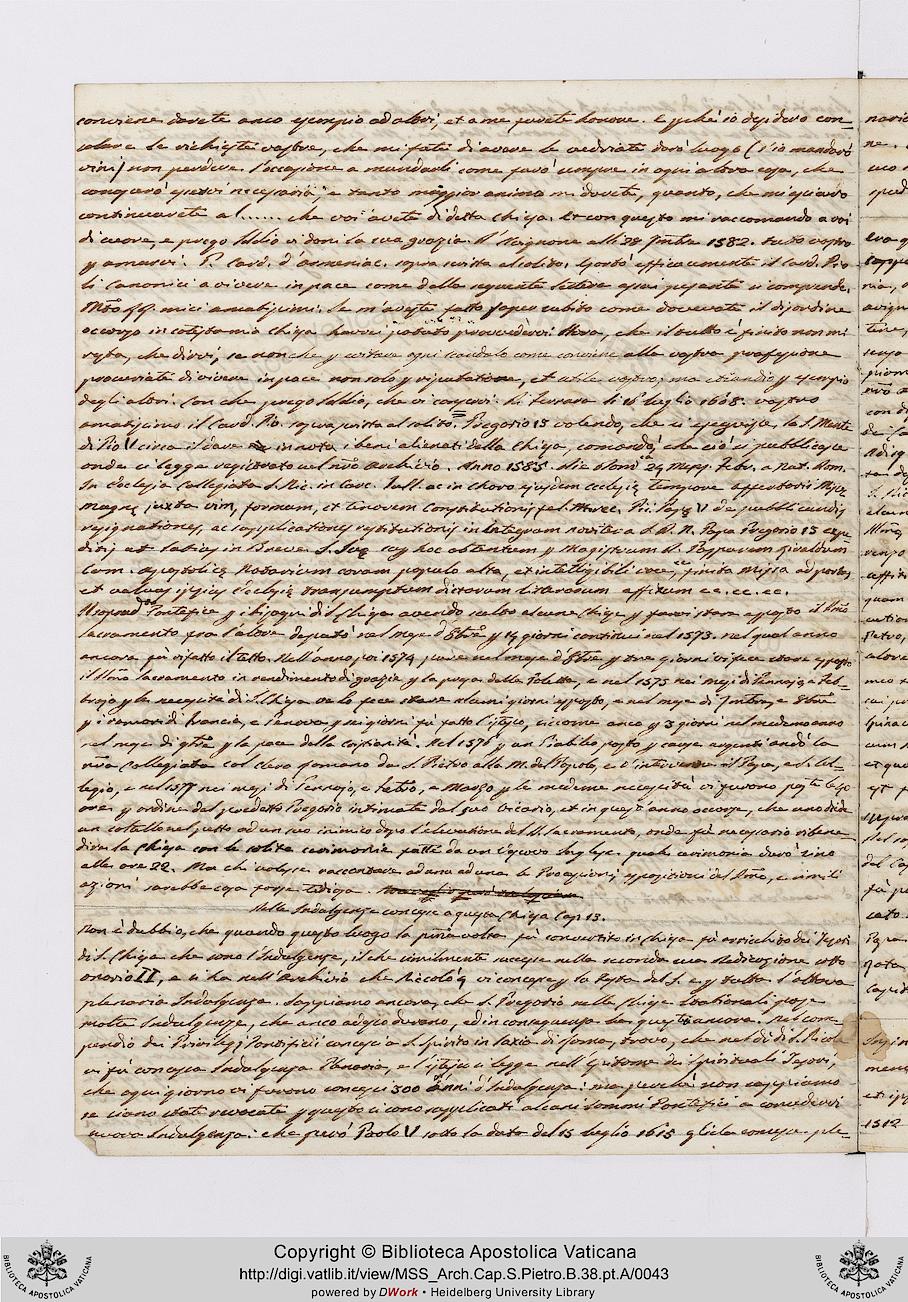 conviene darete anco esempio ad altri, et a me farete honore. E perché io desidero con=
solare le richieste vostre, che mi fate di avere le vedriate darò luogo (l'io manderò
vini) non perdere l'occasione a mandarli come farò sempre in ogni altra cosa, che
conoscerò esservi necessaria, e tanto maggior animo mi darete, quanto, che mi
continuarete a l...... che voi avete di detta Chiesa. Et con questo mi raccomando a voi
di cuore, e prego Iddio vi doni la sua grazia. D'Avignone alli 28 1582. tutto vostro
p amarvi. F. Card. d'Armeniac. sopra scritta al solito. Esortò efficacemente il Card. Pio
li Canonici a vivere in pace come dalla seguente lettera
amatissimi. Se m'aveste fatto saper subito come dovevate il disordine
occorso in cotesta mia Chiesa havrei potuto provvedervi. Hora, che il tutto è finito non mi
resta, che dirvi, se non che p evitare ogni scandalo come conviene alla vostra professione
procuriate di vivere in pace non solo p riputatione, et utile vostro, ma etiandio p esempio
degli altri. Con che prego Iddio, che vi conservi. Di Ferrara li 15 luglio 1608. vostro
amatissimo il Card. Pio. sopra scritta al solito. Gregorio 13 volendo, che si eseguisse la S. Mente
di Pio V circa il dare in nota i beni alienati della Chiesa, comandò, che ciò si pubblicasse
onde si legge registrato nel nro Archivio. Anno 1585. die 24 Mens. Febr. a Nat. Dom.
In Ecclesia Collegiata S. Nic. in Carc. Tull. ac in Choro ejusdem Ecclesię tempore Missę
magnę juxta vim, formam, et tenorem Constitutionis fel. Pii Papę V de publicandis
resignationes, ac applicationes restitutionis in integrum noviter a S. D. N. Papa Gregorio 13
in Breve
Apostolicę Notarium coram populo alta, et intelligibili voce, finita Missa ad portas
et valvas ipsius Ecclesię transumptum dictarum literarum affixum ec. ec. ec.
Pontefice p i bisogni di S. Chiesa avendo scelto alcune Chiese p farvi stare esposto il
sacramento fra l'altre deputò nel mese d' p 14 giorni continui nel 1573. nel qual anno
ancora fu rifatto il tetto. Nell'anno poi 1574 pure nel mese d' p tre giorni vi fece stare esposto
il Sacramento in rendimento di grazie p la presa della Goletta, e nel 1575 nei mesi di Gennajo e Feb=
brajo p le necessità di S. Chiesa ve lo fece stare giorni esposto, e nel mese di
p i romori di Francia, e Genova p sei giorni fu fatto l'istesso, siccome anco p 3 giorni nel medemo anno
nel mese di p la pace della cristianità. Nel 1576 p un Giubileo posto p cause urgenti andò la
nra Collegiata col clero romano da S. Pietro alla M. del Popolo, e v'intervenne il Papa, e S. Col=
legio, e nel 1577 nei mesi di Gennajo, e Febro, e Marzo p le medeme necessità vi furono poste le 40
ore p ordine del predetto Gregorio intimate dal suo Vicario, et in quest'anno occorse, che uno diede
un coltello nel petto ad un suo inimico dopo l'elevatione del SS. sacramento, onde fu necessario ribene=
dire la Chiesa con le solite cerimonie fatte da un Vescovo Inglese. quale cerimonia durò sino
alle ore 22. Ma chi volesse raccontare ad una ad una le Processioni, esposizioni del, e simili
azioni sarebbe cosa forse tediosa.
Delle Indulgenze concesse a questa Chiesa Cap 13.
Non è dubbio, che quando questo luogo la prima volta fu convertito in Chiesa fu arricchito dei Tesori
di S. Chiesa che sono l'Indulgenze, il che similmente successe nella seconda sua dedicazione sotto
onorio II, e si ha nell'Archivio che Niccolò 4 vi concesse p la festa del S. e p tutta l'ottava
plenaria Indulgenza. Sappiamo ancora, che S. Gregorio nelle Chiese Stationali pose
molte Indulgenze, che anco adesso durano, ed in conseguenza ha questa ancora. Nel com=
pendio dei Privilegj Pontificii concessi a S. Spirito in Saxia di Roma, trovo, che nel dì di S. Nicola
vi fu concessa Indulgenza Plenaria, e l'istesso si legge nell'Epitome dei spirituali Tesori,
che ogni giorno vi furono concessi 300 anni d'Indulgenza: ma perché non sappiamo
se siano state revocate p questo si sono supplicati alcuni sommi Pontefici a concedervi
nuova Indulgenza: che però Paolo V sotto la data del 15 luglio 1615 gliela concesse ple=
Copyright © Biblioteca Apostolica Vaticana
http://digi.vatlib.it/view/MSS_Arch.Cap.S.Pietro.B.38.pt.A/0043
powered by DWork • Heidelberg University Library
BIBLIOTECA APOSTOLICA VATICANA
BIBLIOTECA APOSTOLICA VATICANA